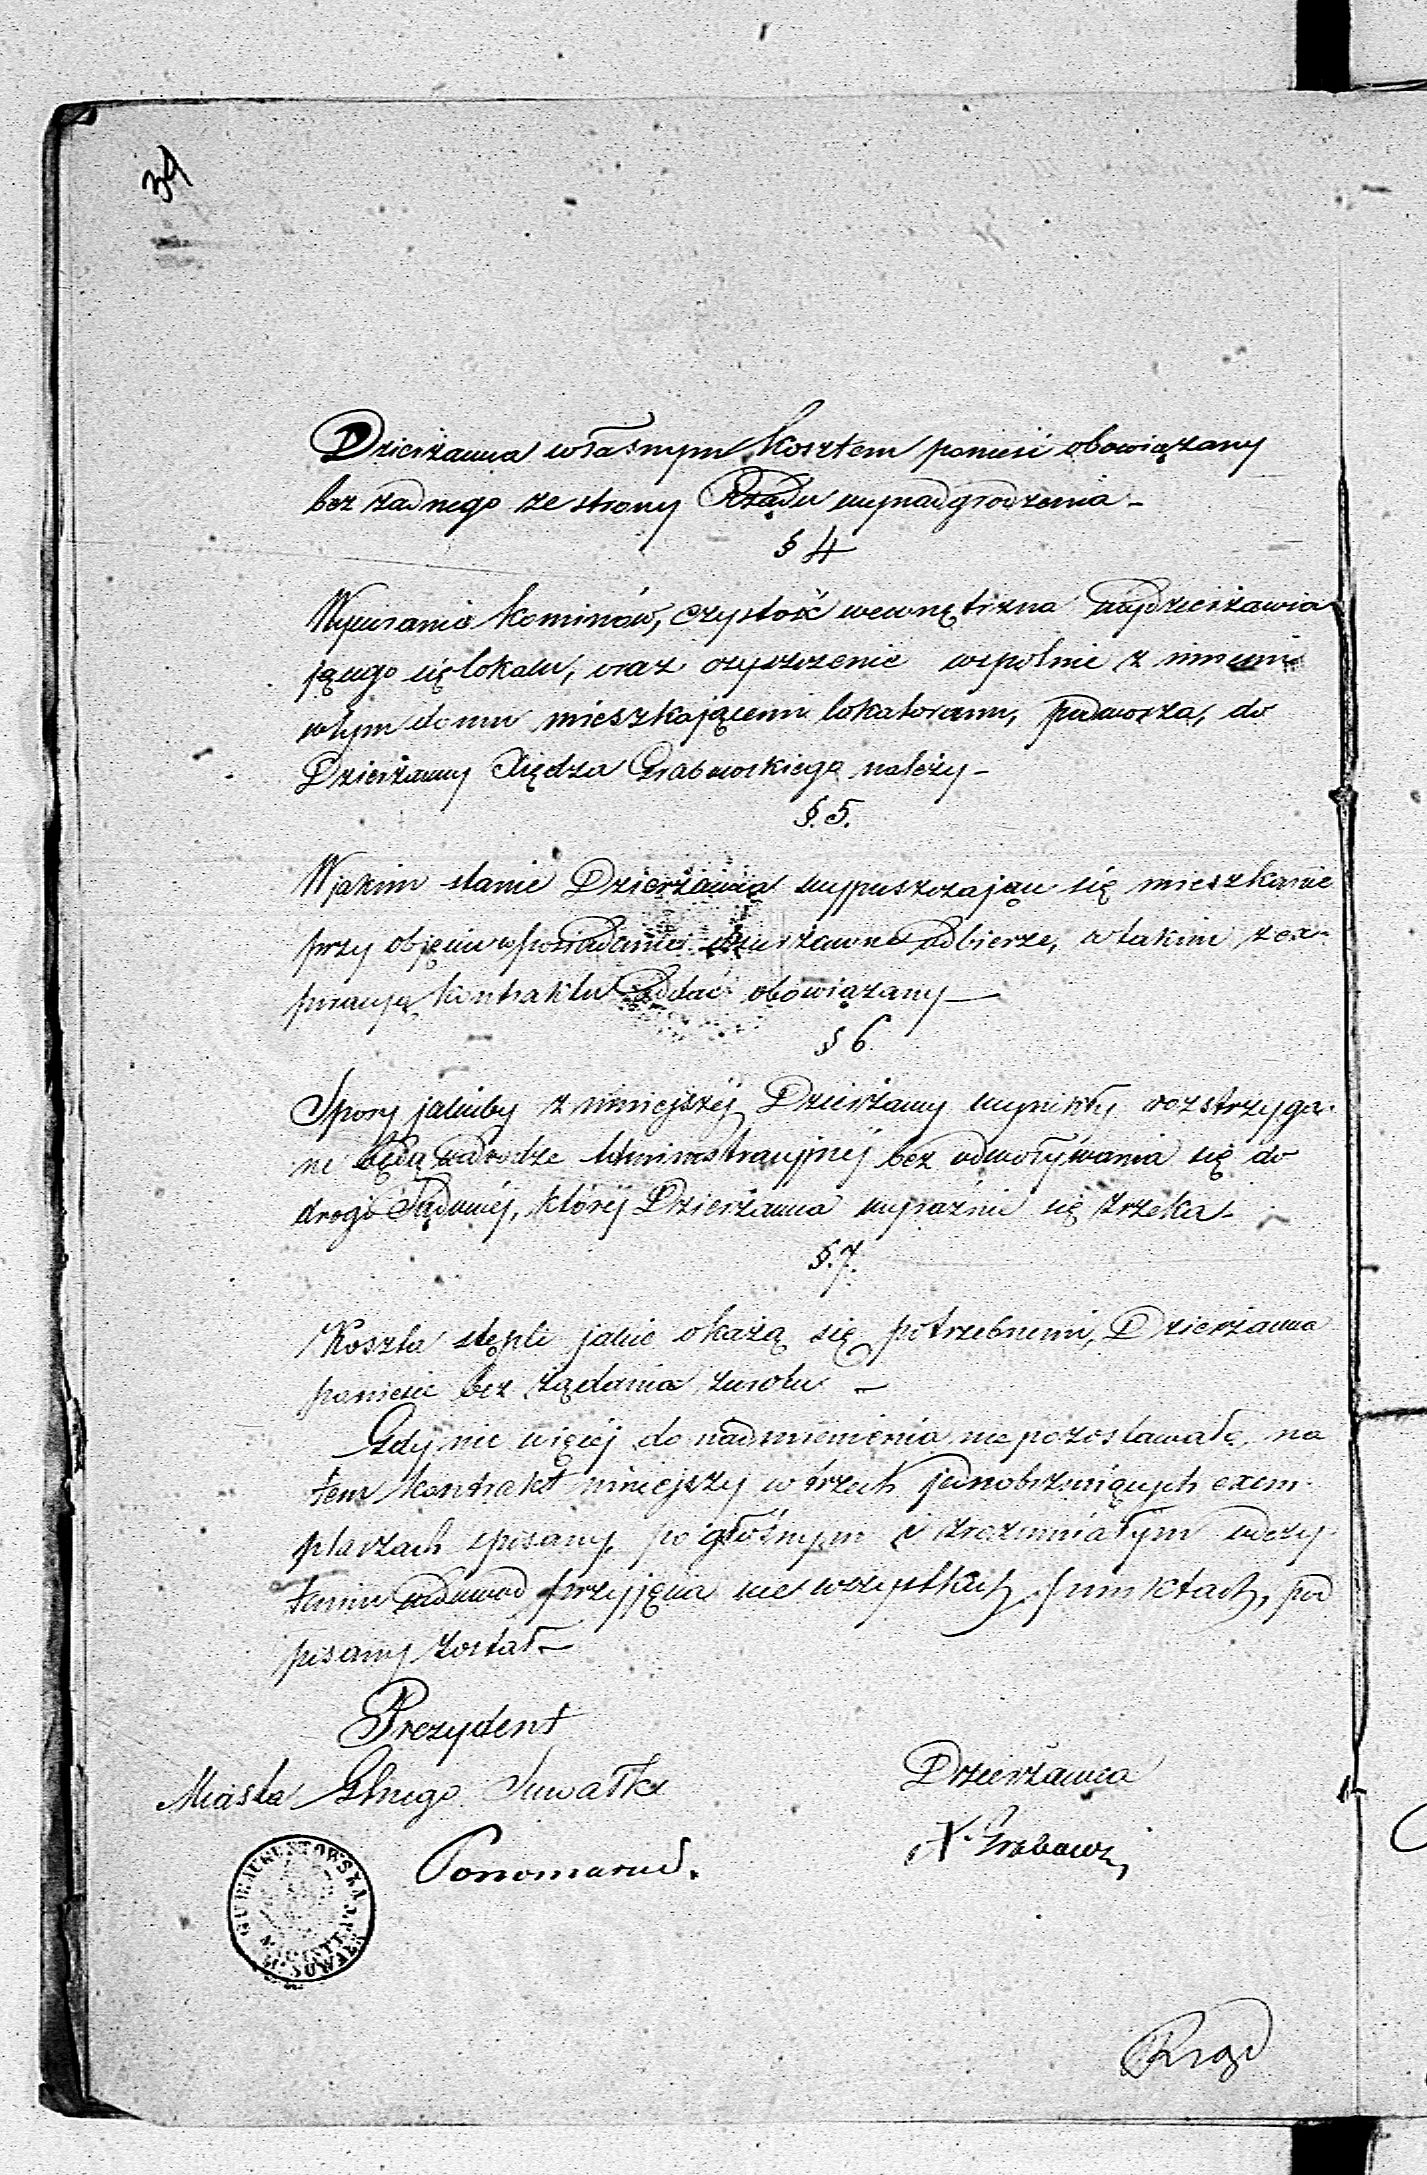 34
Dzierżawca własnym kosztem ponieść obowiązany
bez żadnego ze strony Rządu wynadgrodzenia –
§ 4
Wycieranie kominów, czystość wewnętrzna wydzierżawia
jącego się lokalu, oraz czyszczenie wspólnie z innemi
w tym domu mieszkającemi lokatorami, podwórza, do
Dzierżawcy Xiędza Grabowskiego należy –
§. 5.
W jakim stanie Dzierżawca wypuszczające się mieszkanie
przy objęciu w posiadanie dzierżawne odbierze, w takim z ex-
piracyą kontraktu oddać obowiązany –
§ 6
Spory jakieby z niniejszéj Dzierżawy wynikły rozstrzyga-
ne będą w drodze Administracyjnéj bez odwoływania się do
drogi Sądowéj, któréj Dzierżawca wyraźnie się zrzeka –
§. 7.
Koszta stępli jakie okażą się potrzebnemi, Dzierżawca
poniesie bez żądania zwrotu –
Gdy nic więcéj do nadmienienia nie pozostawało, na
tem kontrakt niniejszy w trzech jednobrzmiących exem-
plarzach spisany, po głośnym i zrozumiałym odczy-
taniu na dowód przyjęcia we wszystkich punktach, pod
pisany został –
Prezydent
Miasta Glnego Suwałk
Dzierżawca
X. Grabowski
GUB: AUGUSTOWSKA
MAGISTRAT
M. SUWAŁK
Rząd